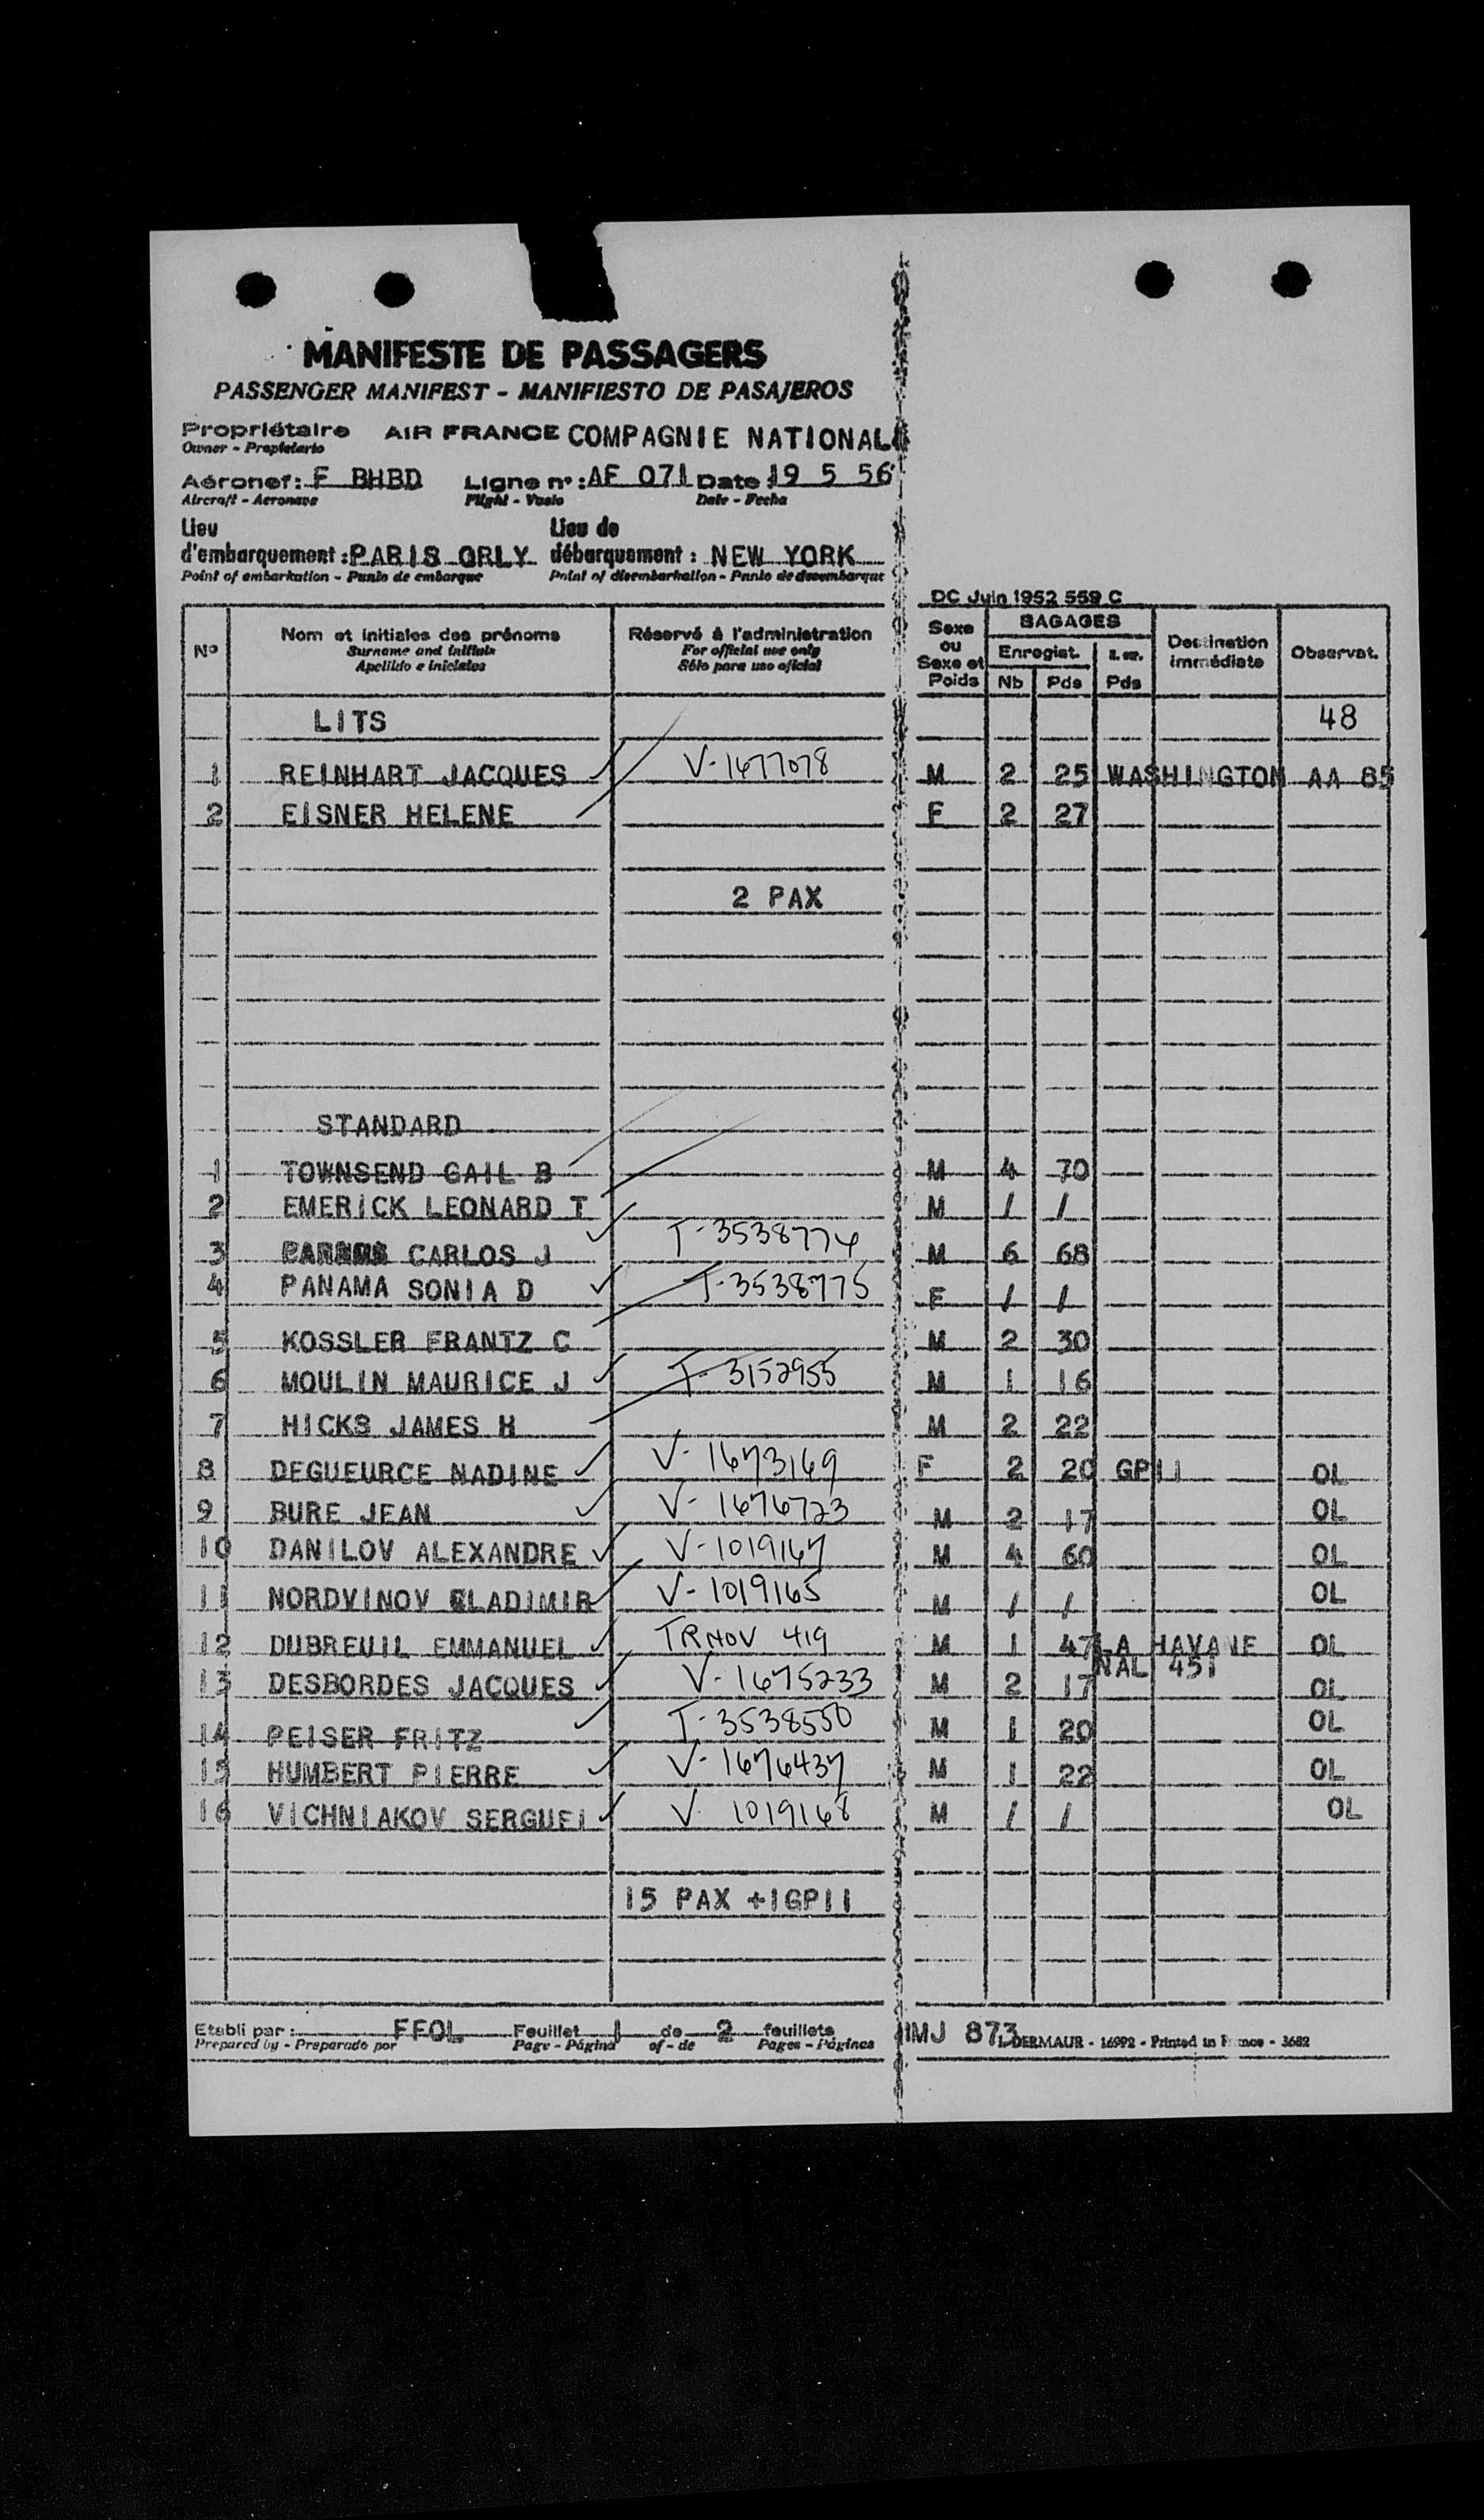 MANIFESTE DE PASSAGERS
PASSENGER MANIFEST - MANIFIESTO DE PASAJEROS
Propriétaire AIR FRANCE COMPAGNIE NATIONALE
Owner - Propietario
Aéronef: F BHBD Ligne n°: AF 071 Date: 19 5 56
Aircraft - Aeronave Flight - Vuelo Date - Fecha
Lieu Lieu de
d'embarquement: PARIS ORLY débarquement: NEW YORK
Point of embarkation - Punto de embarque Point of disembarkation - Punto de desembarque
DC Juin 1952 559 C
N° Nom et initiales des prénoms Réservé à l'administration Sexe ou Sexe et Poids BAGAGES Destination immédiate Observat.
Surname and initials For official use only Enregist.
Apellido e iniciales Sólo para uso oficial Nb Pds Pds
LITS 48
1 REINHART JACQUES V-1677078 M 2 25 WASHINGTON AA 85
2 EISNER HELENE F 2 27
2 PAX
STANDARD
1 TOWNSEND GAIL B M 4 70
2 EMERICK LEONARD T M / /
3 CARLOS J T-3538774 M 6 68
4 PANAMA SONIA D T-3538775 F / /
5 KOSSLER FRANTZ C M 2 30
6 MOULIN MAURICE J T-3152955 M 1 16
7 HICKS JAMES H M 2 22
8 DEGUEURCE NADINE V-1673169 F 2 20 GP11 OL
9 BURE JEAN V-1676723 M 2 17 OL
10 DANILOV ALEXANDRE V-1019167 M 4 60 OL
11 NORDVINOV GLADIMIR V-1019165 M / / OL
12 DUBREUIL EMMANUEL TRNOV 419 M 1 47 LA HAVANE OL
NAL 451
13 DESBORDES JACQUES V-1675233 M 2 17 OL
14 PEISER FRITZ T-3538550 M 1 20 OL
15 HUMBERT PIERRE V-1676437 M 1 22 OL
16 VICHNIAKOV SERGUEI V 1019168 M / / OL
15 PAX +1GP11
Etabli par: FFOL Feuillet 1 de 2 feuillets MJ 873 L. DERMAUR - 16992 - Printed in France - 3682
Prepared by - Preparado por Page - Página of - de Pages - Páginas